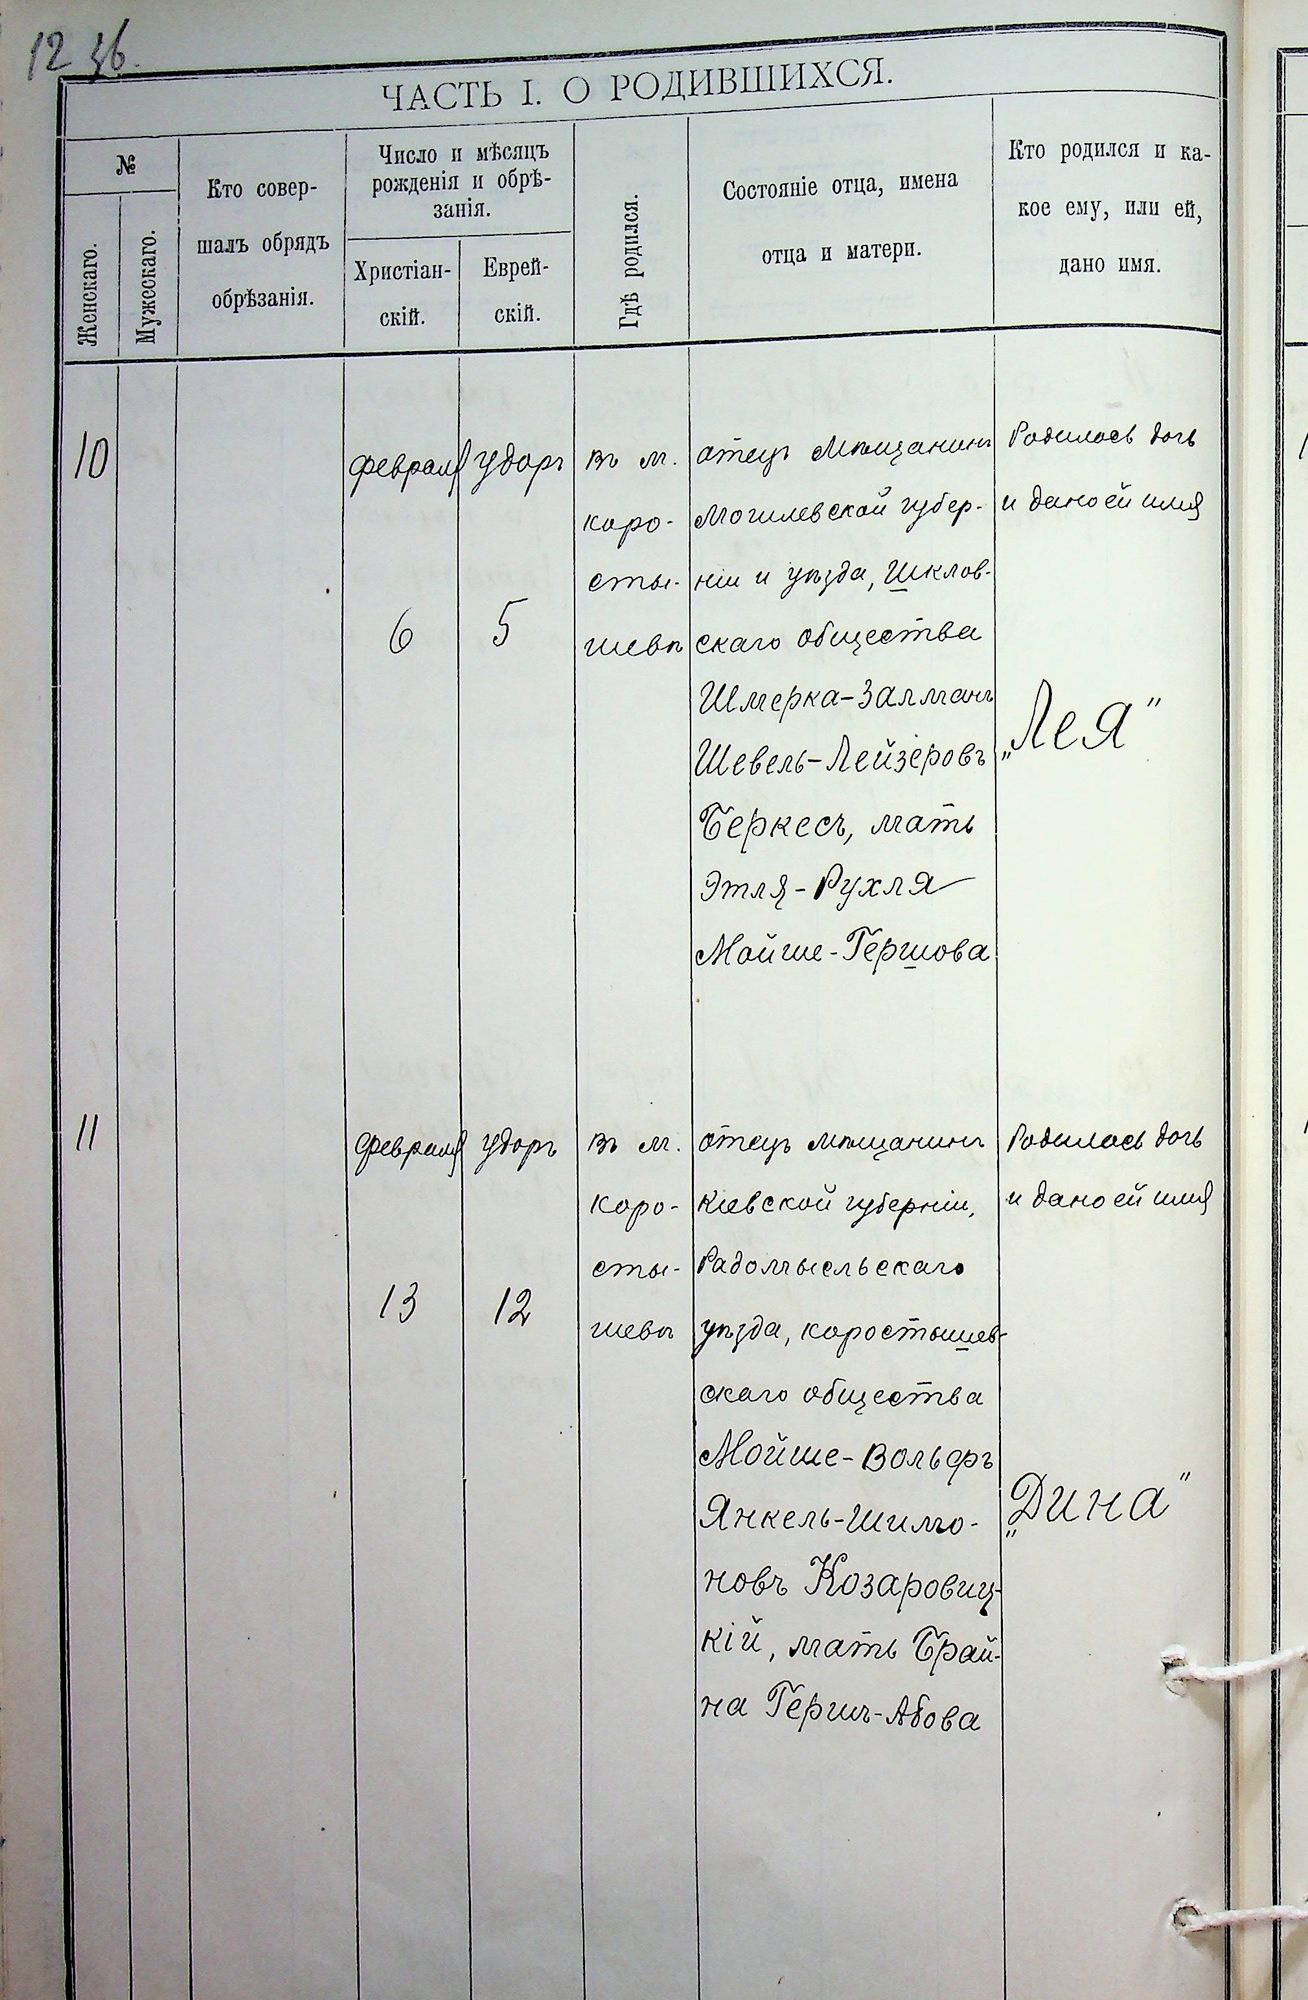 12 36.
ЧАСТЬ I. О РОДИВШИХСЯ.
№
Женскаго.
Мужескаго.
Кто совер-
шалъ обрядъ
обрѣзанія.
Число и мѣсяцъ
рожденія и обрѣ-
занія.
Христіан-
скій.
Еврей-
скій.
Гдѣ родился.
Состояніе отца, имена
отца и матери.
Кто родился и ка-
кое ему, или ей,
дано имя.
10
февраля
6
Удоръ
5
въ м.
коро-
сты-
шевѣ
отецъ мѣщанинъ
Могилевской губер-
ніи и уѣзда, Шклов-
скаго общества
Шмерка-Залманъ
Шевель-Лейзеровъ
Беркесъ, мать
Этля-Рухля
Мойше-Гершова
Родилась дочь
и дано ей имя
„Лея"
11
февраля
13
Удоръ
12
въ м.
коро-
сты-
шевѣ
отецъ мѣщанинъ
Кіевской губерніи,
Радомысльскаго
уѣзда, коростышев-
скаго общества
Мойше-Вольфъ
Янкель-Шимо-
новъ Козаровиц-
кій, мать Брай-
на Гершъ-Абова
Родилась дочь
и дано ей имя
„Дина"